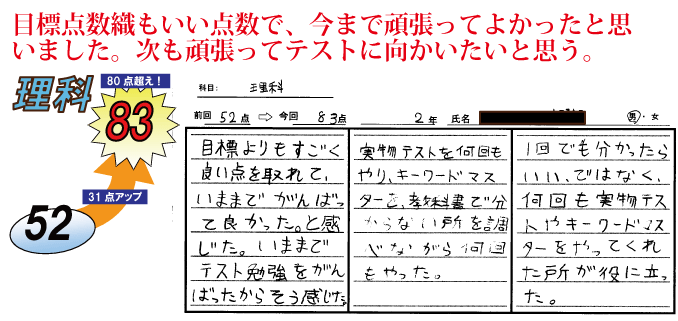 目標点数織もいい点数で、今まで頑張ってよかったと思
いました。次も頑張ってテストに向かいたいと思う。
理科
80点超え!
83
31点アップ
52
科目: 理科
前回 52点 ⇨ 今回 83点 2年 氏名 男・女
目標よりもすごく
良い点を取れて、
いままでがんばっ
て良かった。と感
じた。いままで
テスト勉強をがん
ばったからそう感じた。
実物テストを何回も
やり、キーワードマス
ターを、教科書で分
からない所を調
べながら何回
もやった。
1回でも分かったら
いい、ではなく、
何回も実物テス
トやキーワードマス
ターをやってくれ
た所が役に立っ
た。